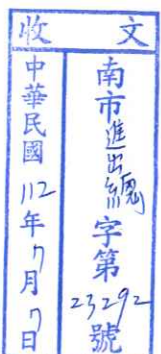 收文
南市進出總字第23292號
中華民國112年7月7日